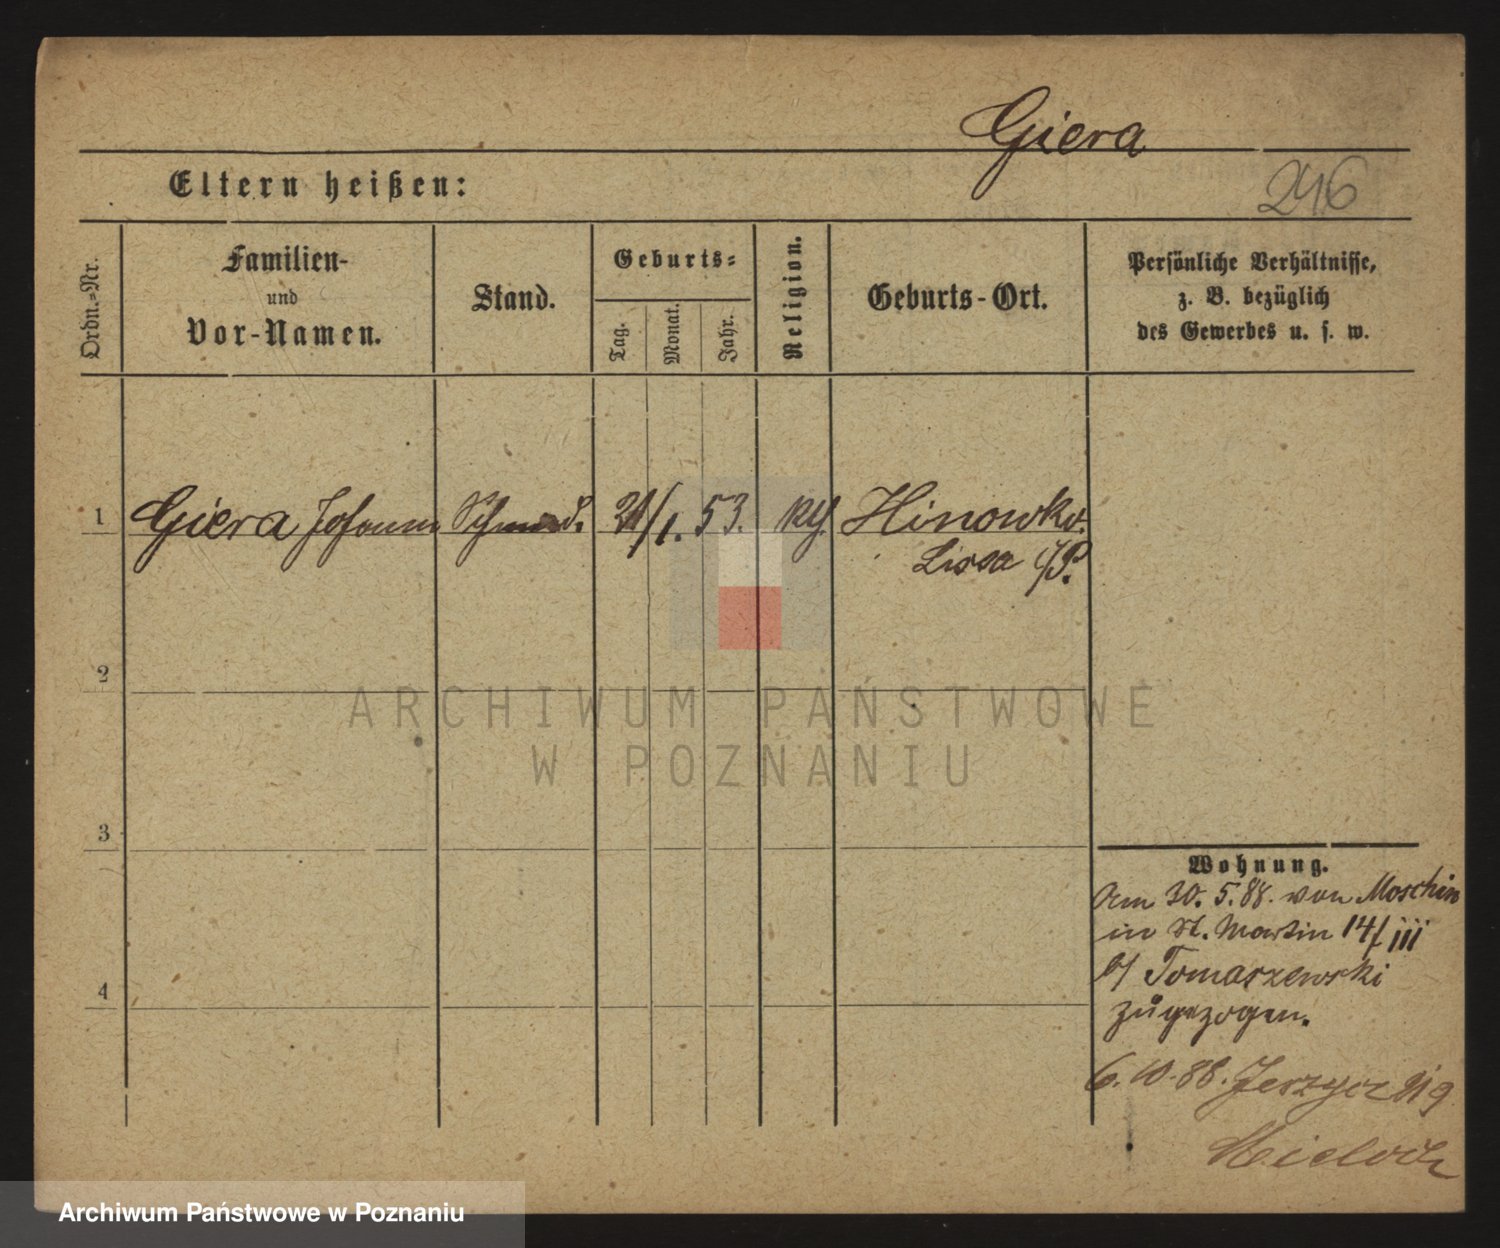 Giera
246
Eltern heißen:
Ordn.-Nr.
Familien-
und
Vor-Namen.
Stand.
Geburts-
Tag.
Monat.
Jahr.
Religion.
Geburts-Ort.
Persönliche Verhältnisse,
z. B. bezüglich
des Gewerbes u. s. w.
1 Giera Johann Schmied. 53. Hinowko.
Lissa i/P.
2
ARCHIWUM PAŃSTWOWE
W POZNANIU
3
Wohnung.
Am 30. 5. 88. von Moschin
in St. Martin 14/III
b/ Tomaszewski
4
zugezogen.
6. 10. 88. Jerzyce
Archiwum Państwowe w Poznaniu